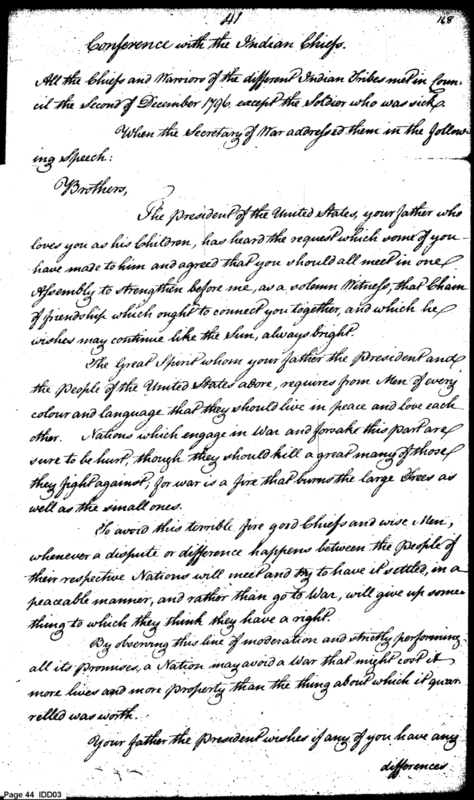 41
168
Conference with the Indian Chiefs.
All the Chiefs and Warriors of the different Indian Tribes met in Coun-
cil the Second of December 1796. except the Soldier who was sick.
When the Secretary of War addressed them in the follow-
ing Speech:
Brothers,
The President of the United States, your father who
loves you as his Children, has heard the request which some of you
have made to him and agreed that you should all meet in one
Assembly to strengthen before me, as a solemn Witness, that Chain
of friendship which ought to connect you together, and which he
wishes may continue like the Sun, always bright.
The Great Spirit whom your father the President and
the People of the United States adore, requires from Men of every
colour and language that they should live in peace and love each
other. Nations which engage in War and forsake this part are
sure to be hurt, though they should kill a great many of those
they fight against, for war is a fire that burns the large Trees as
well as the small ones.
To avoid this terrible fire good Chiefs and wise Men,
whenever a dispute or difference happens between the People of
their respective Nations will meet and try to have it settled, in a
peaceable manner, and rather than go to War, will give up some-
thing to which they think they have a right.
By observing this line of moderation and strictly performing
all its Promises, a Nation may avoid a War that might cost it
more lives and more property than the thing about which it quar-
relled was worth.
Your father the President wishes if any of you have any
differences
Page 44 IDD03